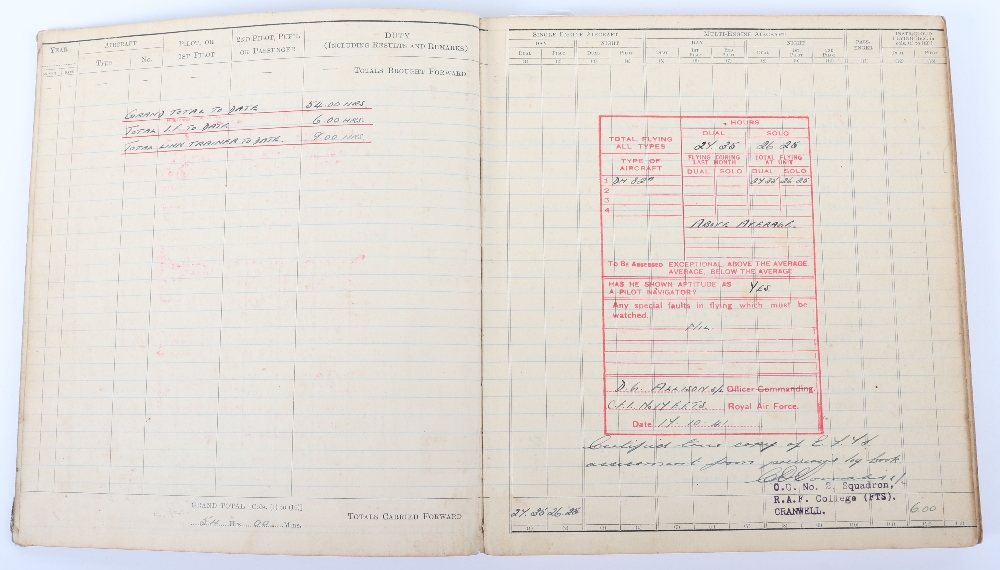 YEAR
AIRCRAFT
Type
No.
PILOT, OR
1ST PILOT
2ND PILOT, PUPIL
OR PASSENGER
DUTY
(INCLUDING RESULTS AND REMARKS)
TOTALS BROUGHT FORWARD
GRAND TOTAL TO DATE 54.00 HRS.
TOTAL I.F. TO DATE 6.00 HRS.
TOTAL LINK TRAINER TO DATE. 9.00 HRS.
GRAND TOTAL [Cols. (1) to (10)]
54 Hrs. 00 Mins.
TOTALS CARRIED FORWARD
SINGLE-ENGINE AIRCRAFT
MULTI-ENGINE AIRCRAFT
DAY NIGHT DAY NIGHT
PASS-
ENGER
DUAL PILOT DUAL PILOT DUAL 1ST PILOT 2ND PILOT DUAL 1ST PILOT 2ND PILOT
DUAL PILOT
TOTAL FLYING
ALL TYPES
HOURS
DUAL SOLO
27.35 26.25
TYPE OF
AIRCRAFT
FLYING DURING
LAST MONTH
TOTAL FLYING
AT UNIT
DUAL SOLO DUAL SOLO
1 DH 82A 27.35 26.25
2
3
4
ABOVE AVERAGE.
To Be Assessed EXCEPTIONAL, ABOVE THE AVERAGE
AVERAGE, BELOW THE AVERAGE
HAS HE SHOWN APTITUDE AS
A PILOT NAVIGATOR? YES
Any special faults in flying which must be
watched.
NIL.
D.G. ALLISON S/L Officer Commanding.
Royal Air Force.
Date 17.10.41
Certified true copy of E.F.T.S.
assessment from previous log book
O.C. No. 2, Squadron,
R.A.F. College (FTS).
CRANWELL.
27.35 26.25
6.00